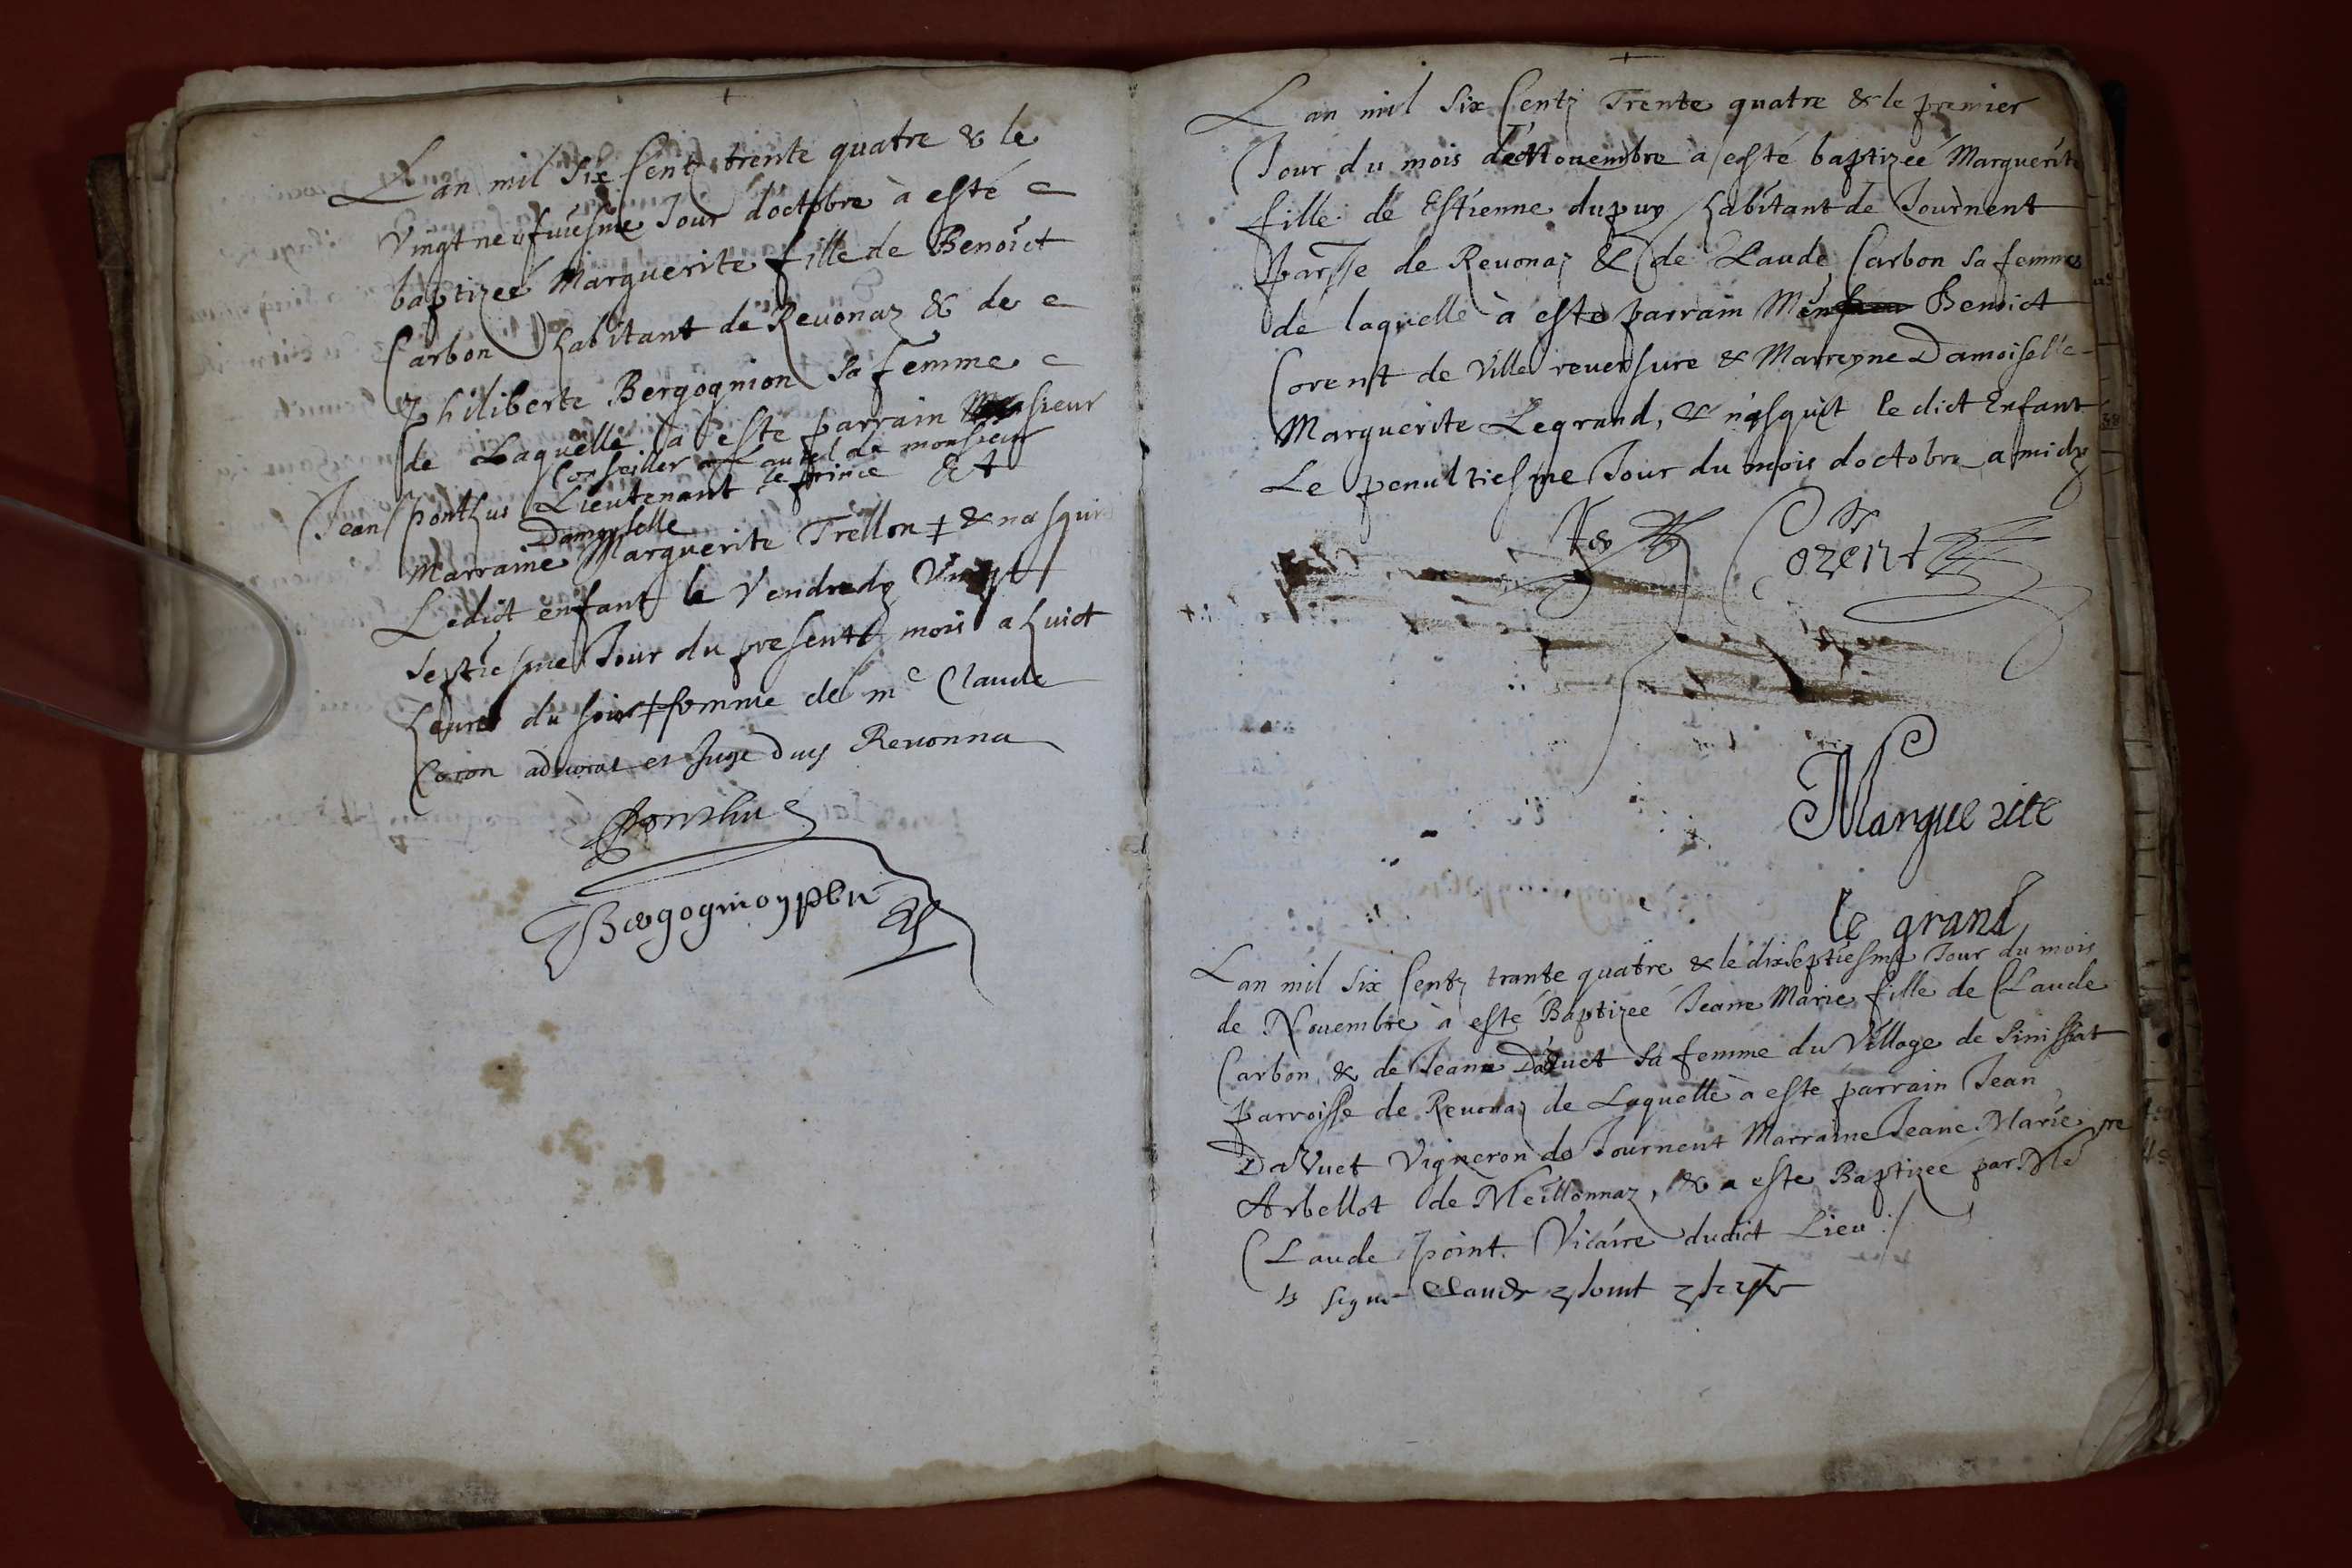 Lan mil Six Centz trente quatre & le
Vingt neufuiesme Jour doctobre à esté
baptizeé Marguerite fille de Benoict
Carbon habitant de Reuonaz & de
Philiberte Bergognion sa femme
de Laquelle a este parrain Monsieur
Conseiller au de monsieur
Jean Ponthus Lieutenant le prince Et
Damoyselle
Marraine Marguerite Trellon ‡ & nasquit
Ledict enfant le Vendredy Vingt
Septiesme Jour du present mois a huict
heures du soir ‡ femme de mc Claude
Coron aduocat et Juge duy Reuonna
Ponthus
Bergognion pbre
Lan mil Six Centz Trente quatre & le premier
Jour du mois de Nouembre a esté baptizeé Marguerite
fille de Estienne dupuy habitant de Journent
parsse de Reuonaz & de Claude Carbon sa femme
de laquelle à este parrain Benoict
Corent de Ville reuersure & Marreyne Damoiselle
Marguerite Legrand, & nasquit le dict Enfant
Le penultiesme Jour du mois doctobre a midy
Corent
Marguerite
le grand
Lan mil Six Centz trante quatre & le dixseptiesme Jour du mois
de Nouembre à esté Baptizeé Jeane Marie fille de Claude
Carbon & de Jeane Dauuet sa femme du Village de Sinissiat
parroisse de Reuonaz de Laquelle à este parrain Jean
DaVuet Vigneron de Journent Marraine Jeane Marie
Arbellot de Meillonnaz, & a este Baptizeé par Me
Claude point. Vicaire dudict Lieu ./
signe Claude point